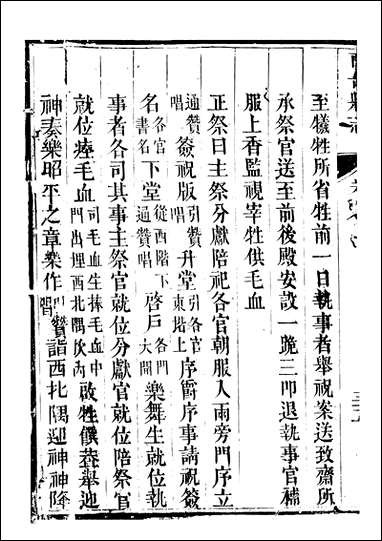 至犧牲所省牲前一日執事者舉祝案送致齋所
承祭官送至前後殿安設一跪三叩退執事官補
服上香監視宰牲供毛血
正祭日主祭分獻陪祀各官朝服入兩旁門序立
通贊唱簽祝版引贊唱升堂引各官東堦上序爵序事請祝簽
名各官書名下堂從西階下通贊唱啓戶各門大開樂舞生就位執
事者各司其事主祭官就位分獻官就位陪祭官
就位瘞毛血司毛血生捧毛血中門出埋西北隅坎內啟牲饌葢舉迎
神奏樂昭平之章樂作引贊詣西北隅迎神神降